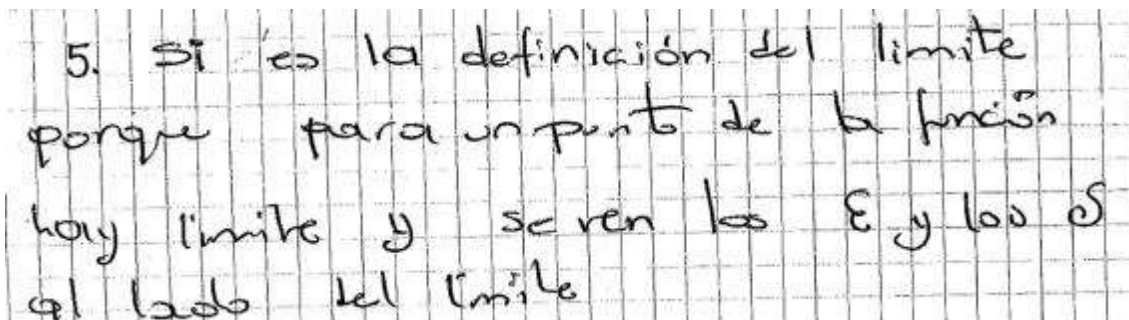 5. Si es la definición del limite
porque para un punto de la función
hay limite y se ven los ε y los δ
al lado del limite